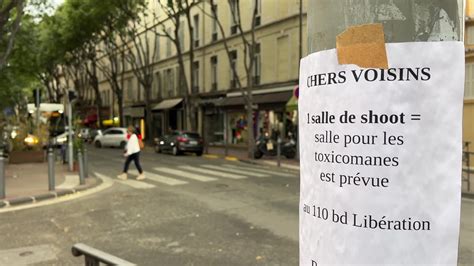 CHERS VOISINS
1 salle de shoot =
salle pour les
toxicomanes
est prévue
au 110 bd Libération